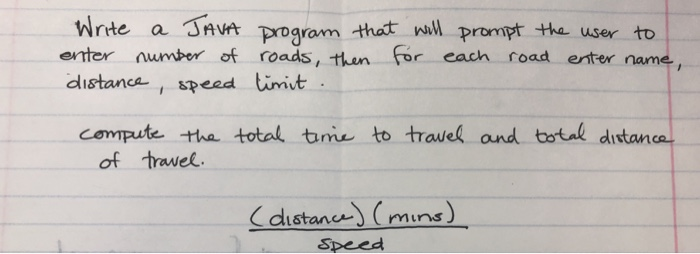 Write a JAVA program that will prompt the user to
enter number of roads, then for each road enter name,
distance, speed limit.
compute the total time to travel and total distance
of travel.
(distance) (mins)
speed